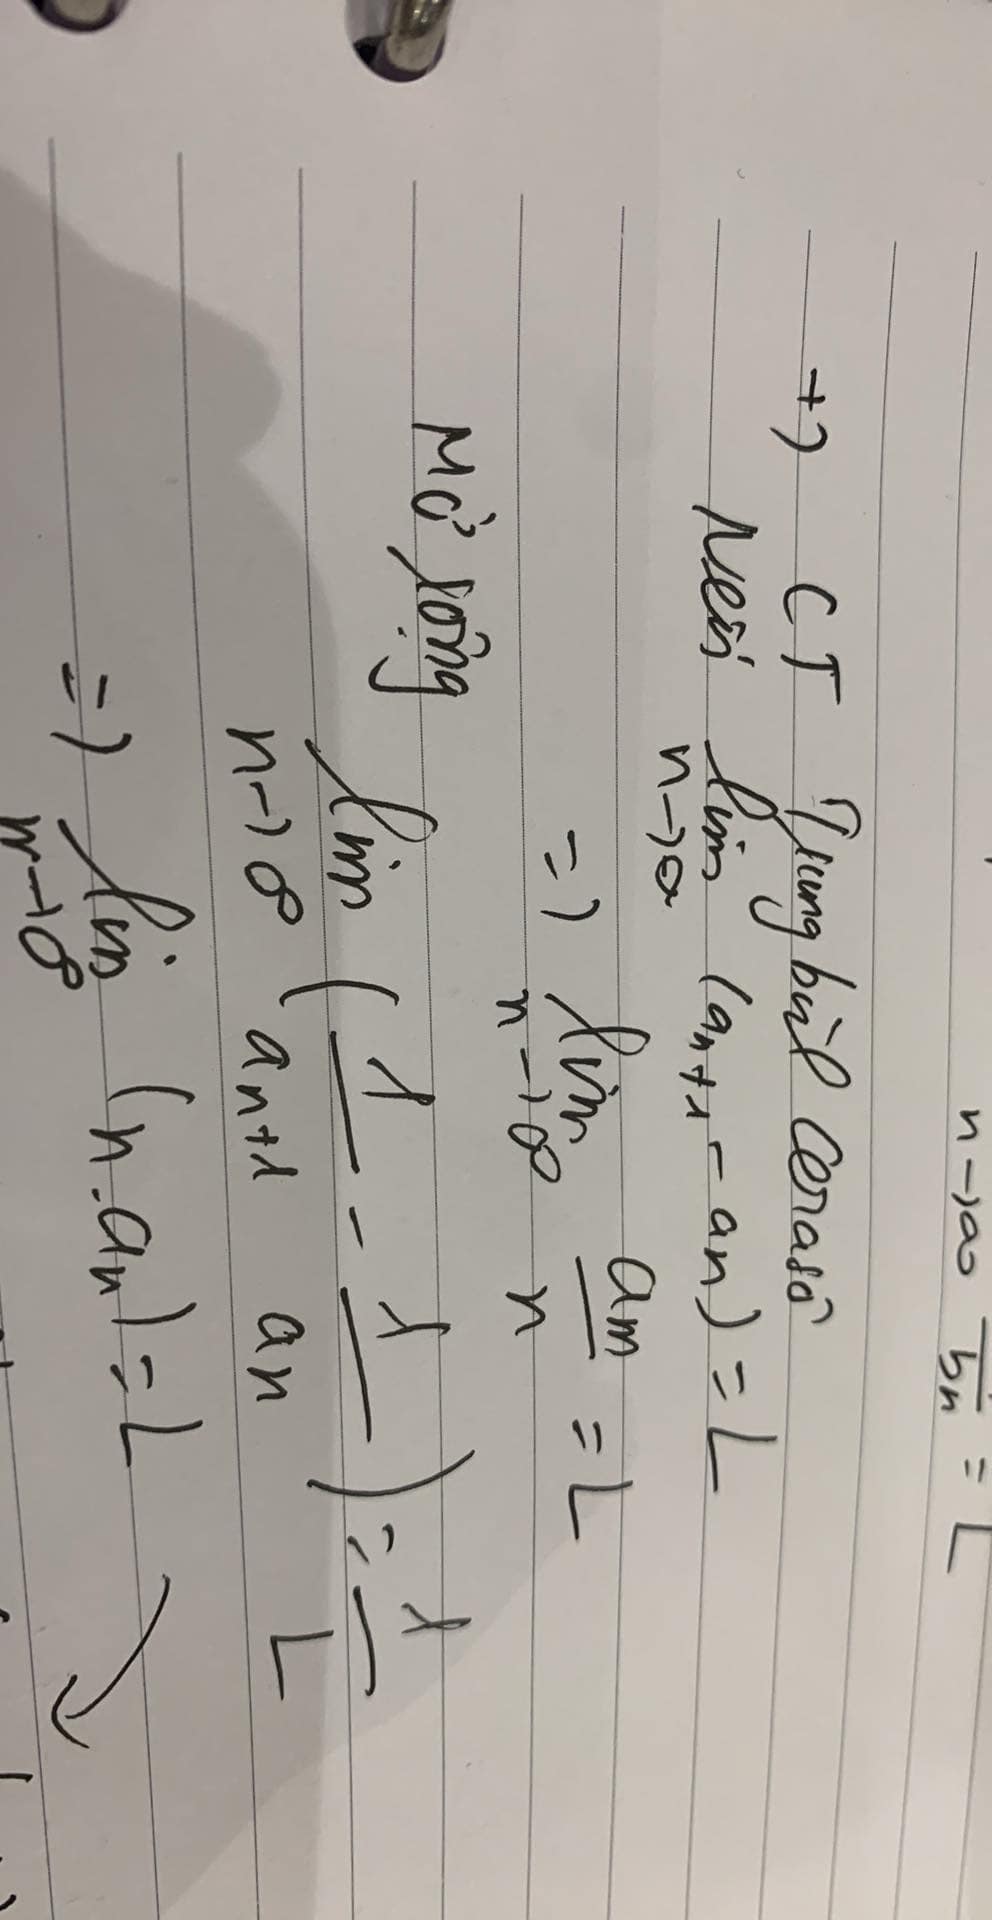 n→∞ bn = L
+) CT Trung bình Cerasô
Nếu lim n→∞ (an+1 - an) = L
=> lim n→∞ an/n = L
Mở rộng
lim n→∞ (1/an+1 - 1/an) = 1/L
=> lim n→∞ (n.an) = L